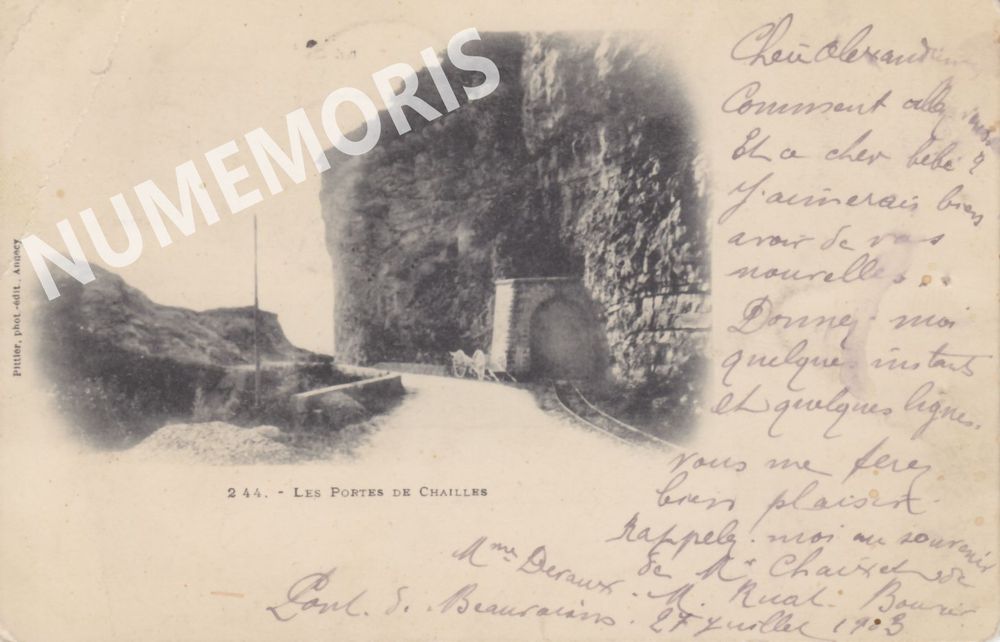 NUMEMORIS
Pittier, phot.-édit., Annecy
244. - LES PORTES DE CHAILLES
Comment allez vous
Et ce cher bébé ?
J'aimerais bien
avoir de vos
nouvelles.
Donnez-moi
quelques instant
et quelques lignes.
vous me ferez
bien plaisir.
Rappelez-moi au souvenir
de Mr
Mme Deraux. M. Ruat.
Pont de Beauvoisin. 27 Juillet 1903